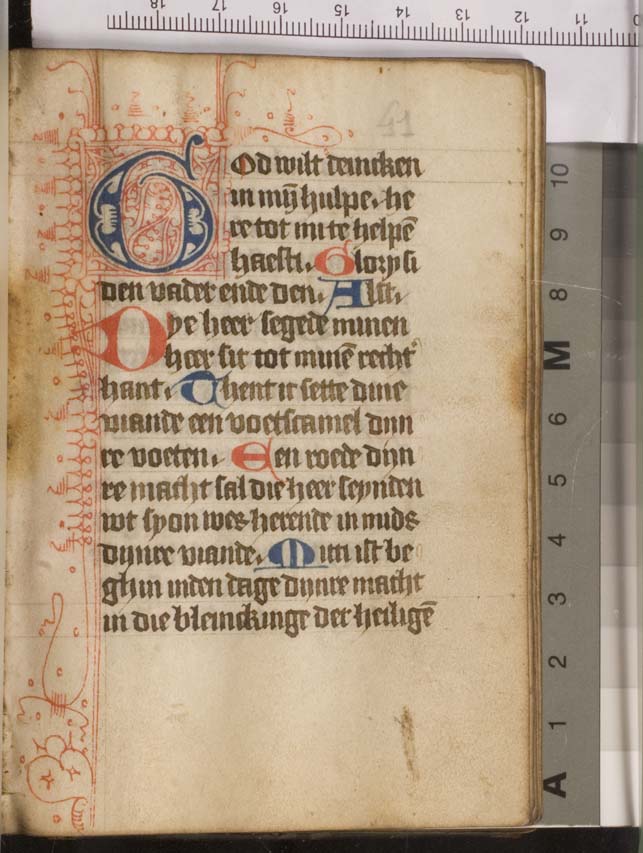 18 17 16 15 14 13 12 11
41
God wilt deincken
in mÿ hulpe, he
re tot mi te helpē
haesti. Glory si
den vader ende den. Alst.
Dye heer segede minen
heer sit tot minē recht
hant. Thent ic sette dine
viande een voetscamel dijn
re voeten. Een roede dijn
re macht sal die heer seynden
wt syon wes herende in mids
dijnre viande. Mit di ist be
ghin inden dage dijnre macht
in die bleinckinge der heiligē
10
9
8
M
6
5
4
3
2
1
A